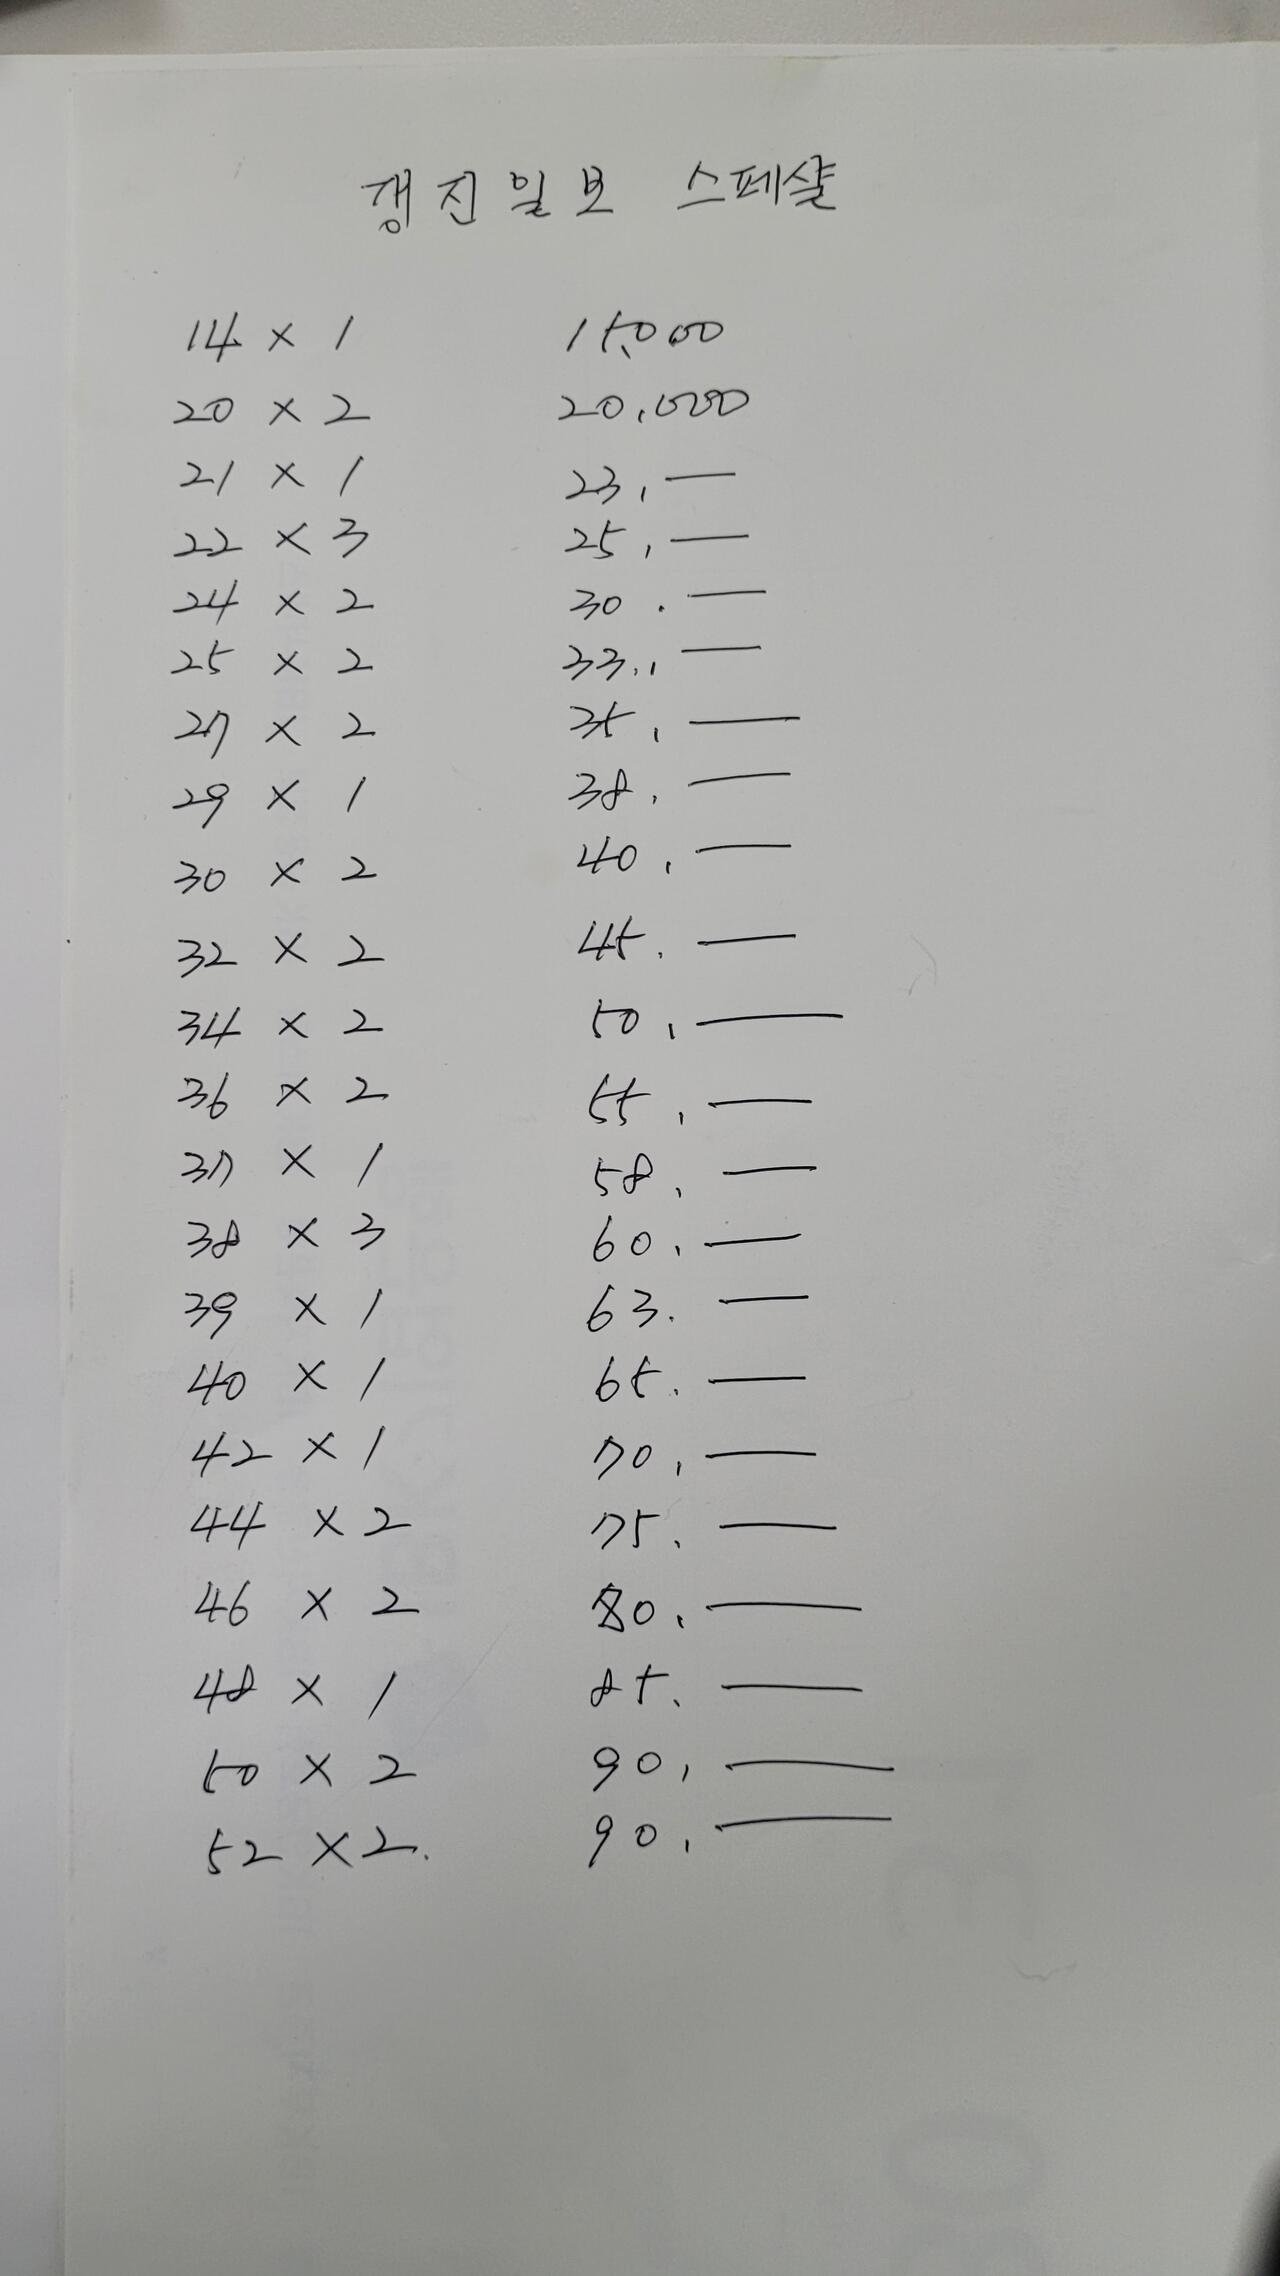 갱진일보 스페샬
14 × 1 15,000
20 × 2 20,000
21 × 1 23, —
22 × 3 25, —
24 × 2 30. —
25 × 2 33., —
27 × 2 35, —
29 × 1 38, —
30 × 2 40, —
32 × 2 45. —
34 × 2 50, —
36 × 2 55, —
37 × 1 58, —
38 × 3 60, —
39 × 1 63. —
40 × 1 65. —
42 × 1 70, —
44 × 2 75. —
46 × 2 80, —
48 × 1 85. —
50 × 2 90, —
52 × 2. 90, —